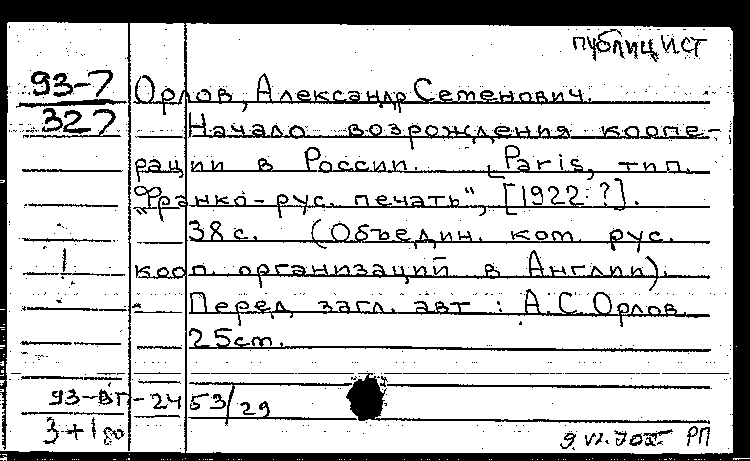 публицист
93-7 Орлов, Александр Семенович.
327 Начало возрождения коопе-
рации в России. Paris, тип.
„Франко-рус. печать", [1922 ?].
38 с. (Объедин. ком. рус.
кооп. организаций в Англии).
Перед загл. авт : А.С.Орлов
25 cm.
93-ВП-2453/29
3+1
РП